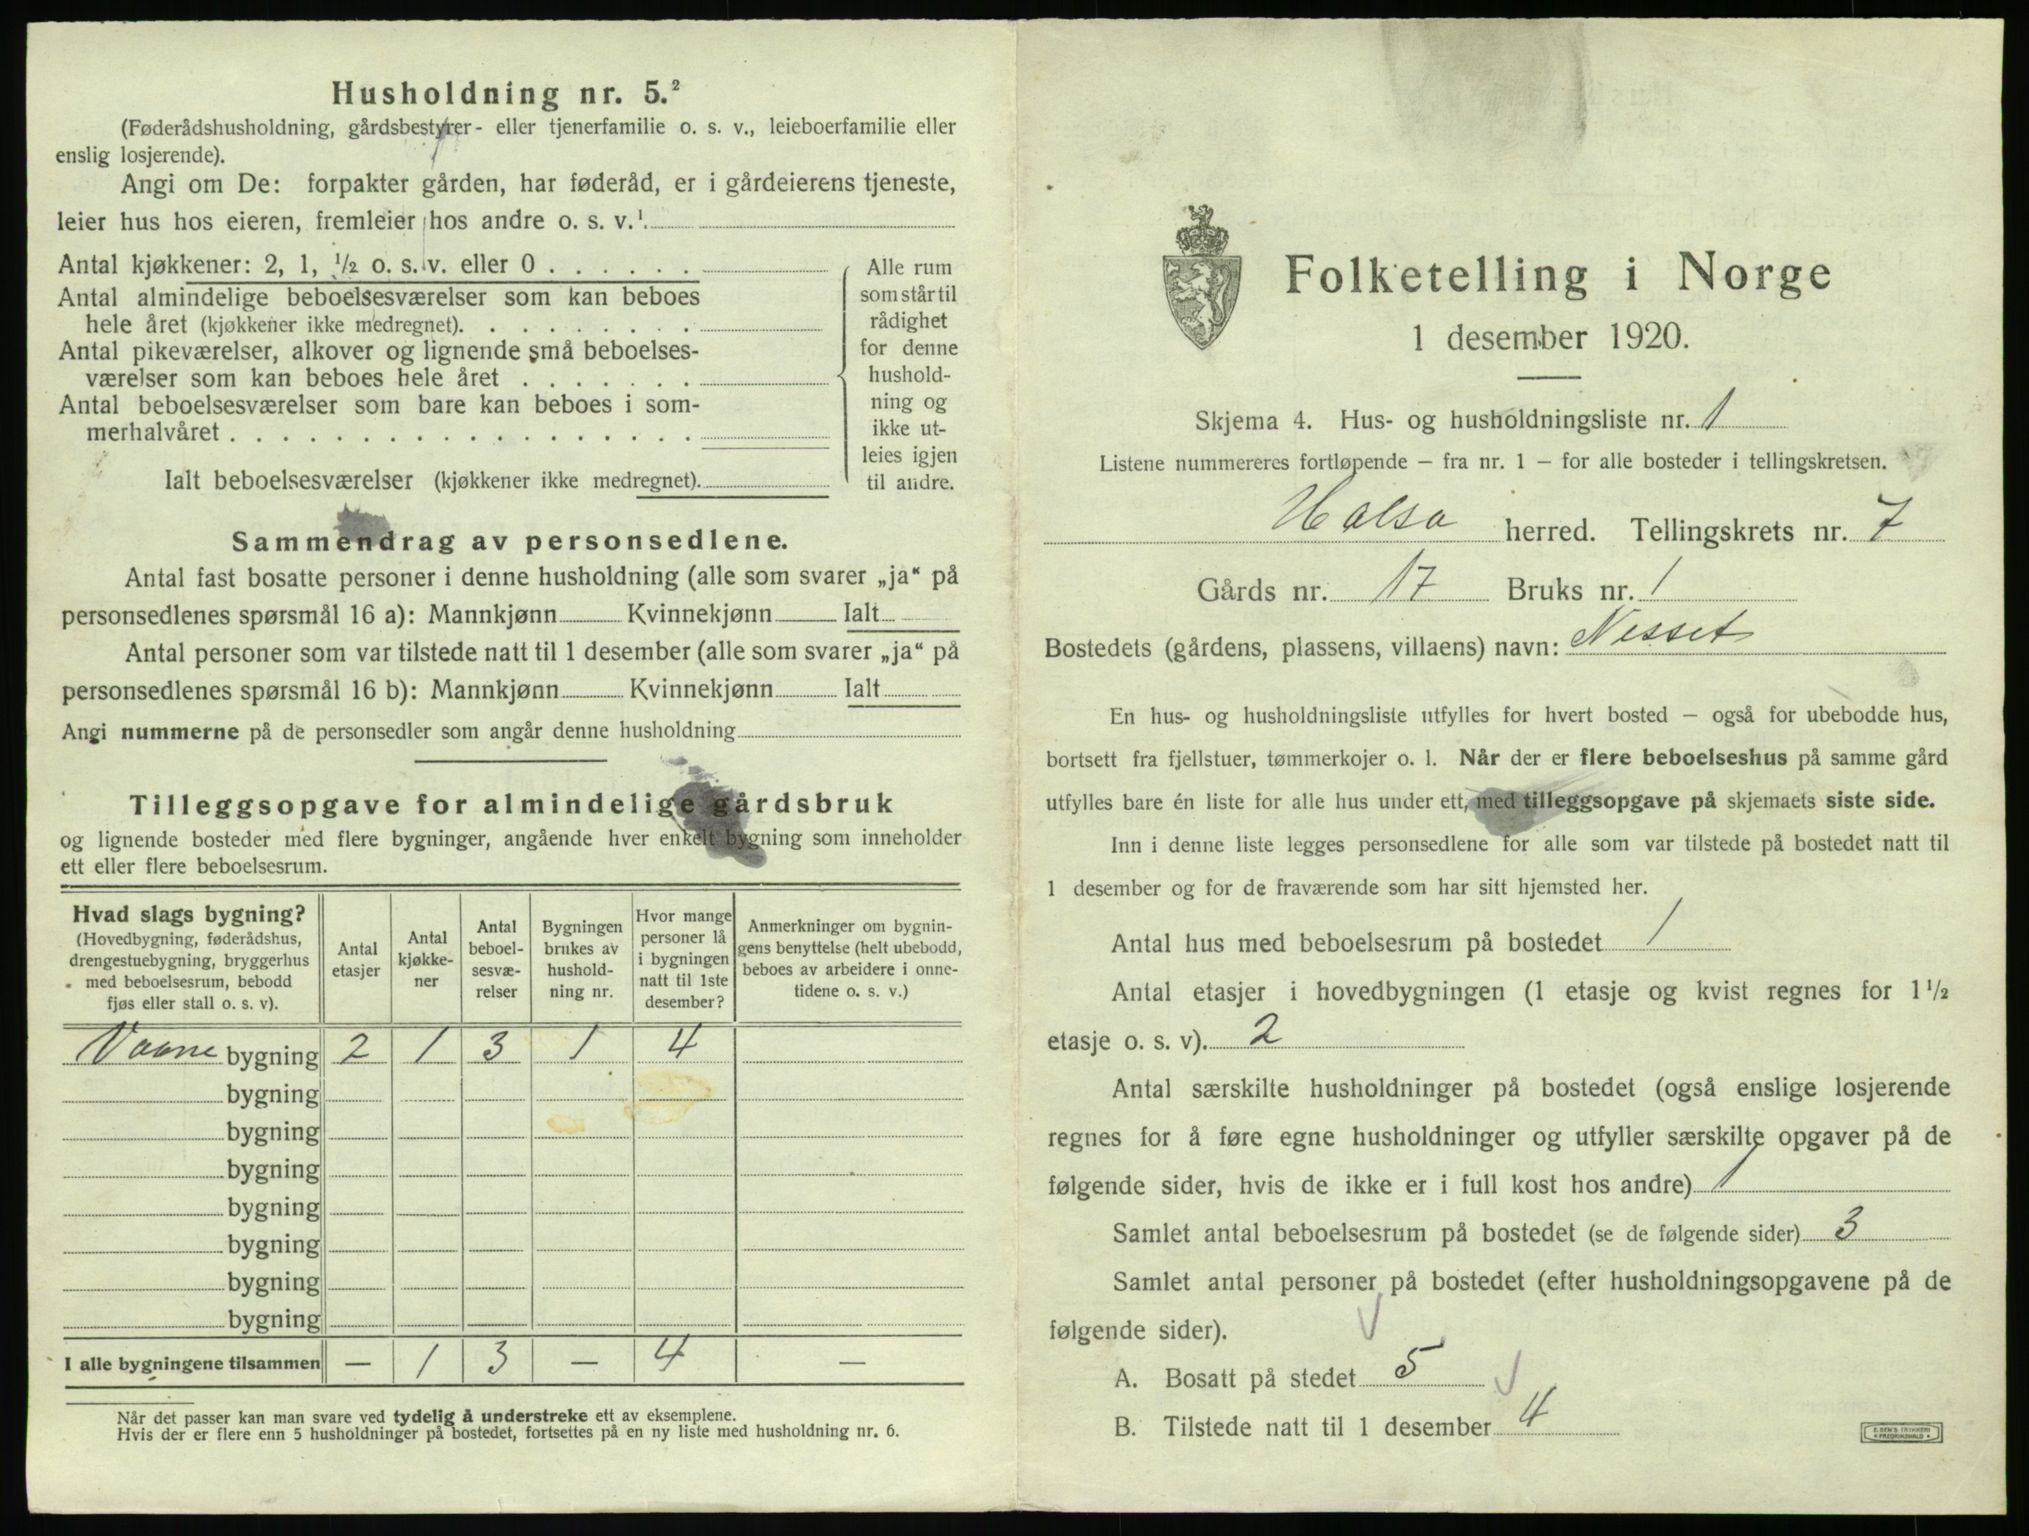 Husholdning nr. 5.²
(Føderådshusholdning, gårdsbestyrer- eller tjenerfamilie o. s. v., leieboerfamilie eller
enslig losjerende).
Angi om De: forpakter gården, har føderåd, er i gårdeierens tjeneste,
leier hus hos eieren, fremleier hos andre o. s. v.¹
Antal kjøkkener: 2, 1, ½ o. s. v. eller 0 . . . . . .
Antal almindelige beboelsesværelser som kan beboes
hele året (kjøkkener ikke medregnet). . . . . . . . .
Antal pikeværelser, alkover og lignende små beboelses-
værelser som kan beboes hele året . . . . . . .
Antal beboelsesværelser som bare kan beboes i som-
merhalvåret . . . . . . . . . . . . . . . . . .
Ialt beboelsesværelser (kjøkkener ikke medregnet).
Alle rum
som står til
rådighet
for denne
hushold-
ning og
ikke ut-
leies igjen
til andre.
Sammendrag av personsedlene.
Antal fast bosatte personer i denne husholdning (alle som svarer „ja“ på
personsedlenes spørsmål 16 a): Mannkjønn Kvinnekjønn Ialt
Antal personer som var tilstede natt til 1 desember (alle som svarer „ja“ på
personsedlenes spørsmål 16 b): Mannkjønn Kvinnekjønn Ialt
Angi nummerne på de personsedler som angår denne husholdning
Tilleggsopgave for almindelige gårdsbruk
og lignende bosteder med flere bygninger, angående hver enkelt bygning som inneholder
ett eller flere beboelsesrum.
Hvad slags bygning?
(Hovedbygning, føderådshus,
drengestuebygning, bryggerhus
med beboelsesrum, bebodd
fjøs eller stall o. s. v).
Antal
etasjer
Antal
kjøkke-
ner
Antal
beboel-
sesvæ-
relser
Bygningen
brukes av
hushold-
ning nr.
Hvor mange
personer lå
i bygningen
natt til 1ste
desember?
Anmerkninger om bygnin-
gens benyttelse (helt ubebodd,
beboes av arbeidere i onne-
tidene o. s. v.)
Vaane bygning 2 1 3 1 4
bygning
bygning
bygning
bygning
bygning
bygning
bygning
I alle bygningene tilsammen — 1 3 — 4 —
Når det passer kan man svare ved tydelig å understreke ett av eksemplene.
Hvis der er flere enn 5 husholdninger på bostedet, fortsettes på en ny liste med husholdning nr. 6.
Folketelling i Norge
1 desember 1920.
Skjema 4. Hus- og husholdningsliste nr. 1
Listene nummereres fortløpende – fra nr. 1 – for alle bosteder i tellingskretsen.
Halsa herred. Tellingskrets nr. 7
Gårds nr. 17 Bruks nr. 1
Bostedets (gårdens, plassens, villaens) navn: Nesset
En hus- og husholdningsliste utfylles for hvert bosted – også for ubebodde hus,
bortsett fra fjellstuer, tømmerkojer o. l. Når der er flere beboelseshus på samme gård
utfylles bare én liste for alle hus under ett, med tilleggsopgave på skjemaets siste side.
Inn i denne liste legges personsedlene for alle som var tilstede på bostedet natt til
1 desember og for de fraværende som har sitt hjemsted her.
Antal hus med beboelsesrum på bostedet 1
Antal etasjer i hovedbygningen (1 etasje og kvist regnes for 1½
etasje o. s. v). 2
Antal særskilte husholdninger på bostedet (også enslige losjerende
regnes for å føre egne husholdninger og utfyller særskilte opgaver på de
følgende sider, hvis de ikke er i full kost hos andre) 1
Samlet antal beboelsesrum på bostedet (se de følgende sider) 3
Samlet antal personer på bostedet (efter husholdningsopgavene på de
følgende sider).
A. Bosatt på stedet 5
B. Tilstede natt til 1 desember 4